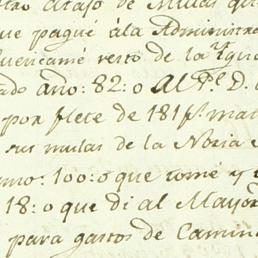 atajo de Mulas que
que pagué âla Administra
resto de la Ygua
ado año: 82: o Al Pe. D.
por flete de 181 ps. ma
sus mulas de la Noria
mo: 100: o que tomé y
18: o que di al Mayor
para gastos de Camin